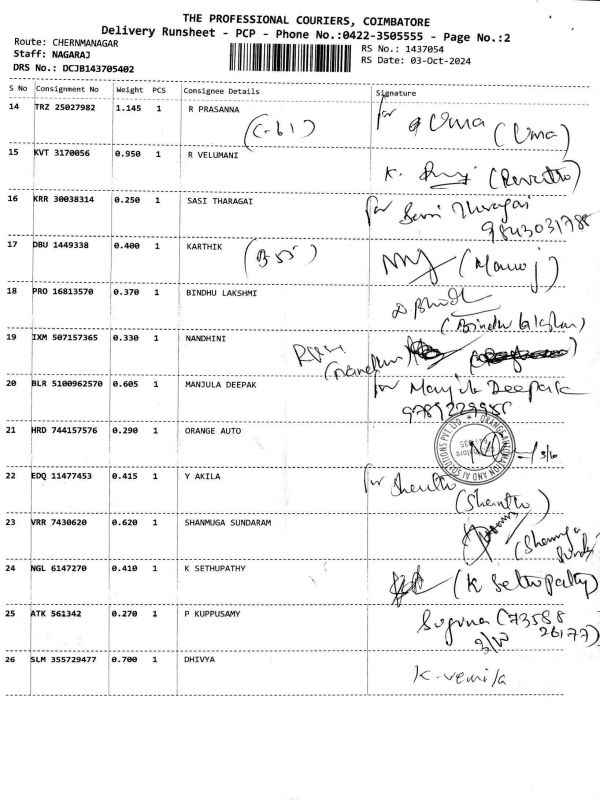 THE PROFESSIONAL COURIERS, COIMBATORE
Delivery Runsheet - PCP - Phone No.:0422-3505555 - Page No.:2
Route: CHERNMANAGAR
Staff: NAGARAJ
DRS No.: DCJB143705402
RS No.: 1437054
RS Date: 03-Oct-2024
S No Consignment No Weight PCS Consignee Details Signature
14 TRZ 25027982 1.145 1 R PRASANNA for Uma
(C-61) (Uma)
15 KVT 3170056 0.950 1 R VELUMANI K.
16 KRR 30038314 0.250 1 SASI THARAGAI for
9843031788
17 DBU 1449338 0.400 1 KARTHIK (B55) (Manoj)
18 PRO 16813570 0.370 1 BINDHU LAKSHMI
19 IXM 507157365 0.330 1 NANDHINI
20 BLR 5100962570 0.605 1 MANJULA DEEPAK for Manjula Deepak
21 HRD 744157576 0.290 1 ORANGE AUTO
22 EDQ 11477453 0.415 1 Y AKILA for
23 VRR 7430620 0.620 1 SHANMUGA SUNDARAM
24 NGL 6147270 0.410 1 K SETHUPATHY (K Sethupathy)
25 ATK 561342 0.270 1 P KUPPUSAMY Suguna (73588
26177)
26 SLM 355729477 0.700 1 DHIVYA